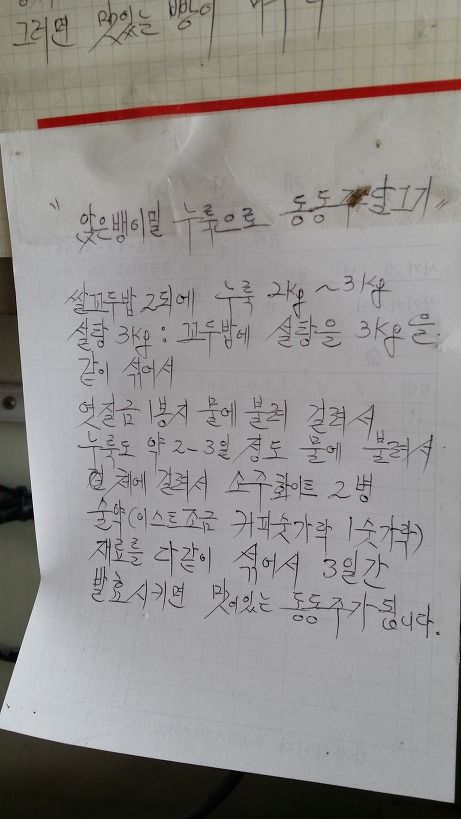 그러면 맛있는
" 앉은뱅이밀 누룩으로 동동주 담그기 "
쌀꼬두밥 2되에 누룩 2kg ~ 3kg
설탕 3kg : 꼬두밥에 설탕을 3kg을
같이 섞어서
엿질금 1봉지 물에 불려 걸려서
누룩도 약 2-3일 정도 물에 불려서
체에 걸려서 소주화이트 2병
술약(이스트조금 커피숫가락 1숫가락)
재료를 다같이 섞어서 3일간
발효시키면 맛이있는 동동주가 됩니다.